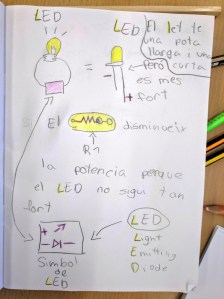 LED
LED
El let te
una pota
llarga i una
però curta
es mes
+ fort
El
disminueix
R1
la potencia perque
el LED no sigui tan
fort
+
-
Simbol
de
LED
LED
Light
Emitting
Diode